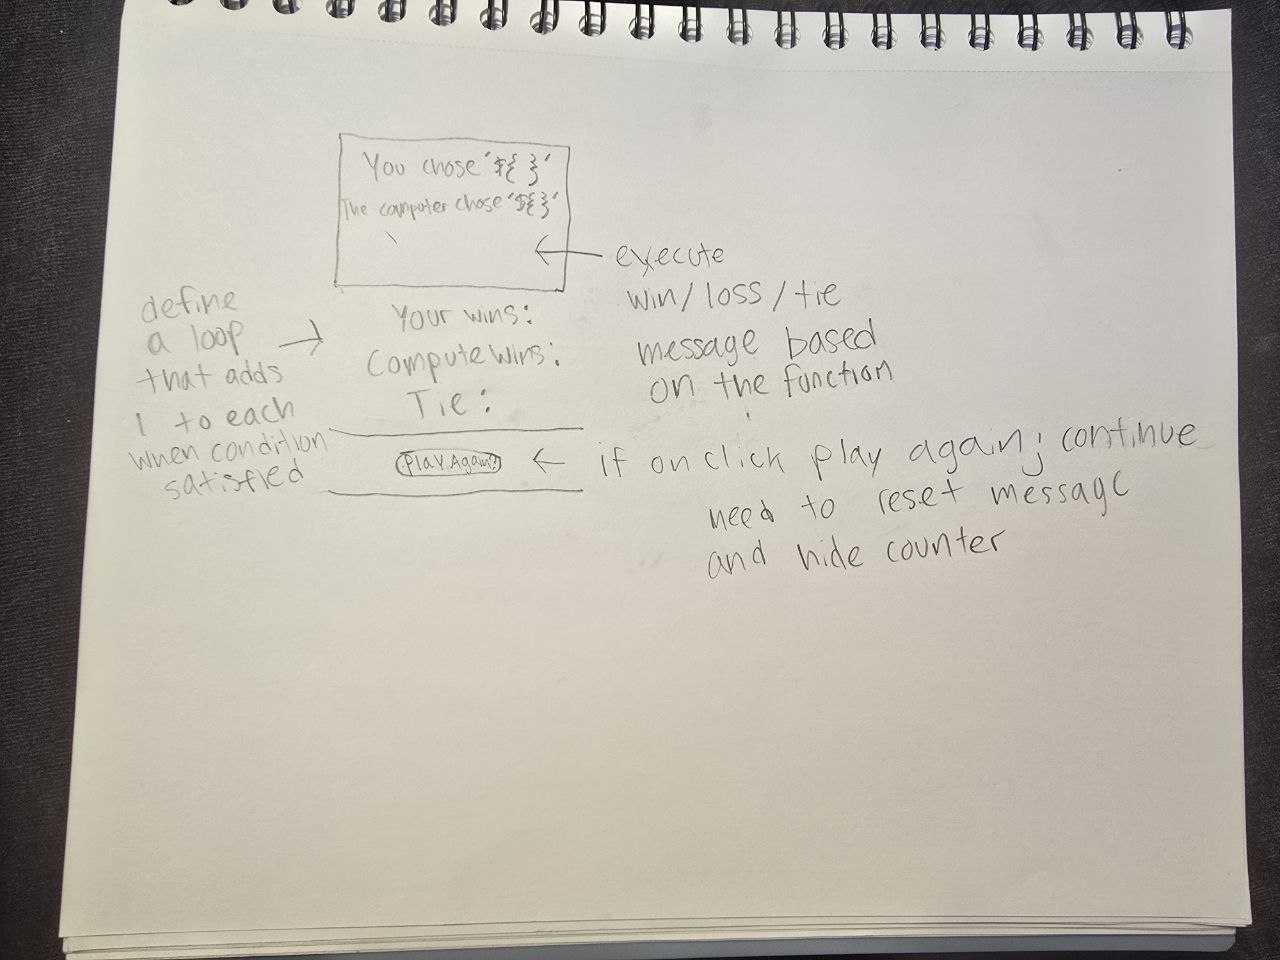 You chose '${ }'
The computer chose '${ }'
execute
win/loss/tie
message based
on the function
define
a loop
that adds
1 to each
when condition
satisfied
Your wins:
Compute wins:
Tie:
Play Again?
if on click play again; continue
need to reset message
and hide counter